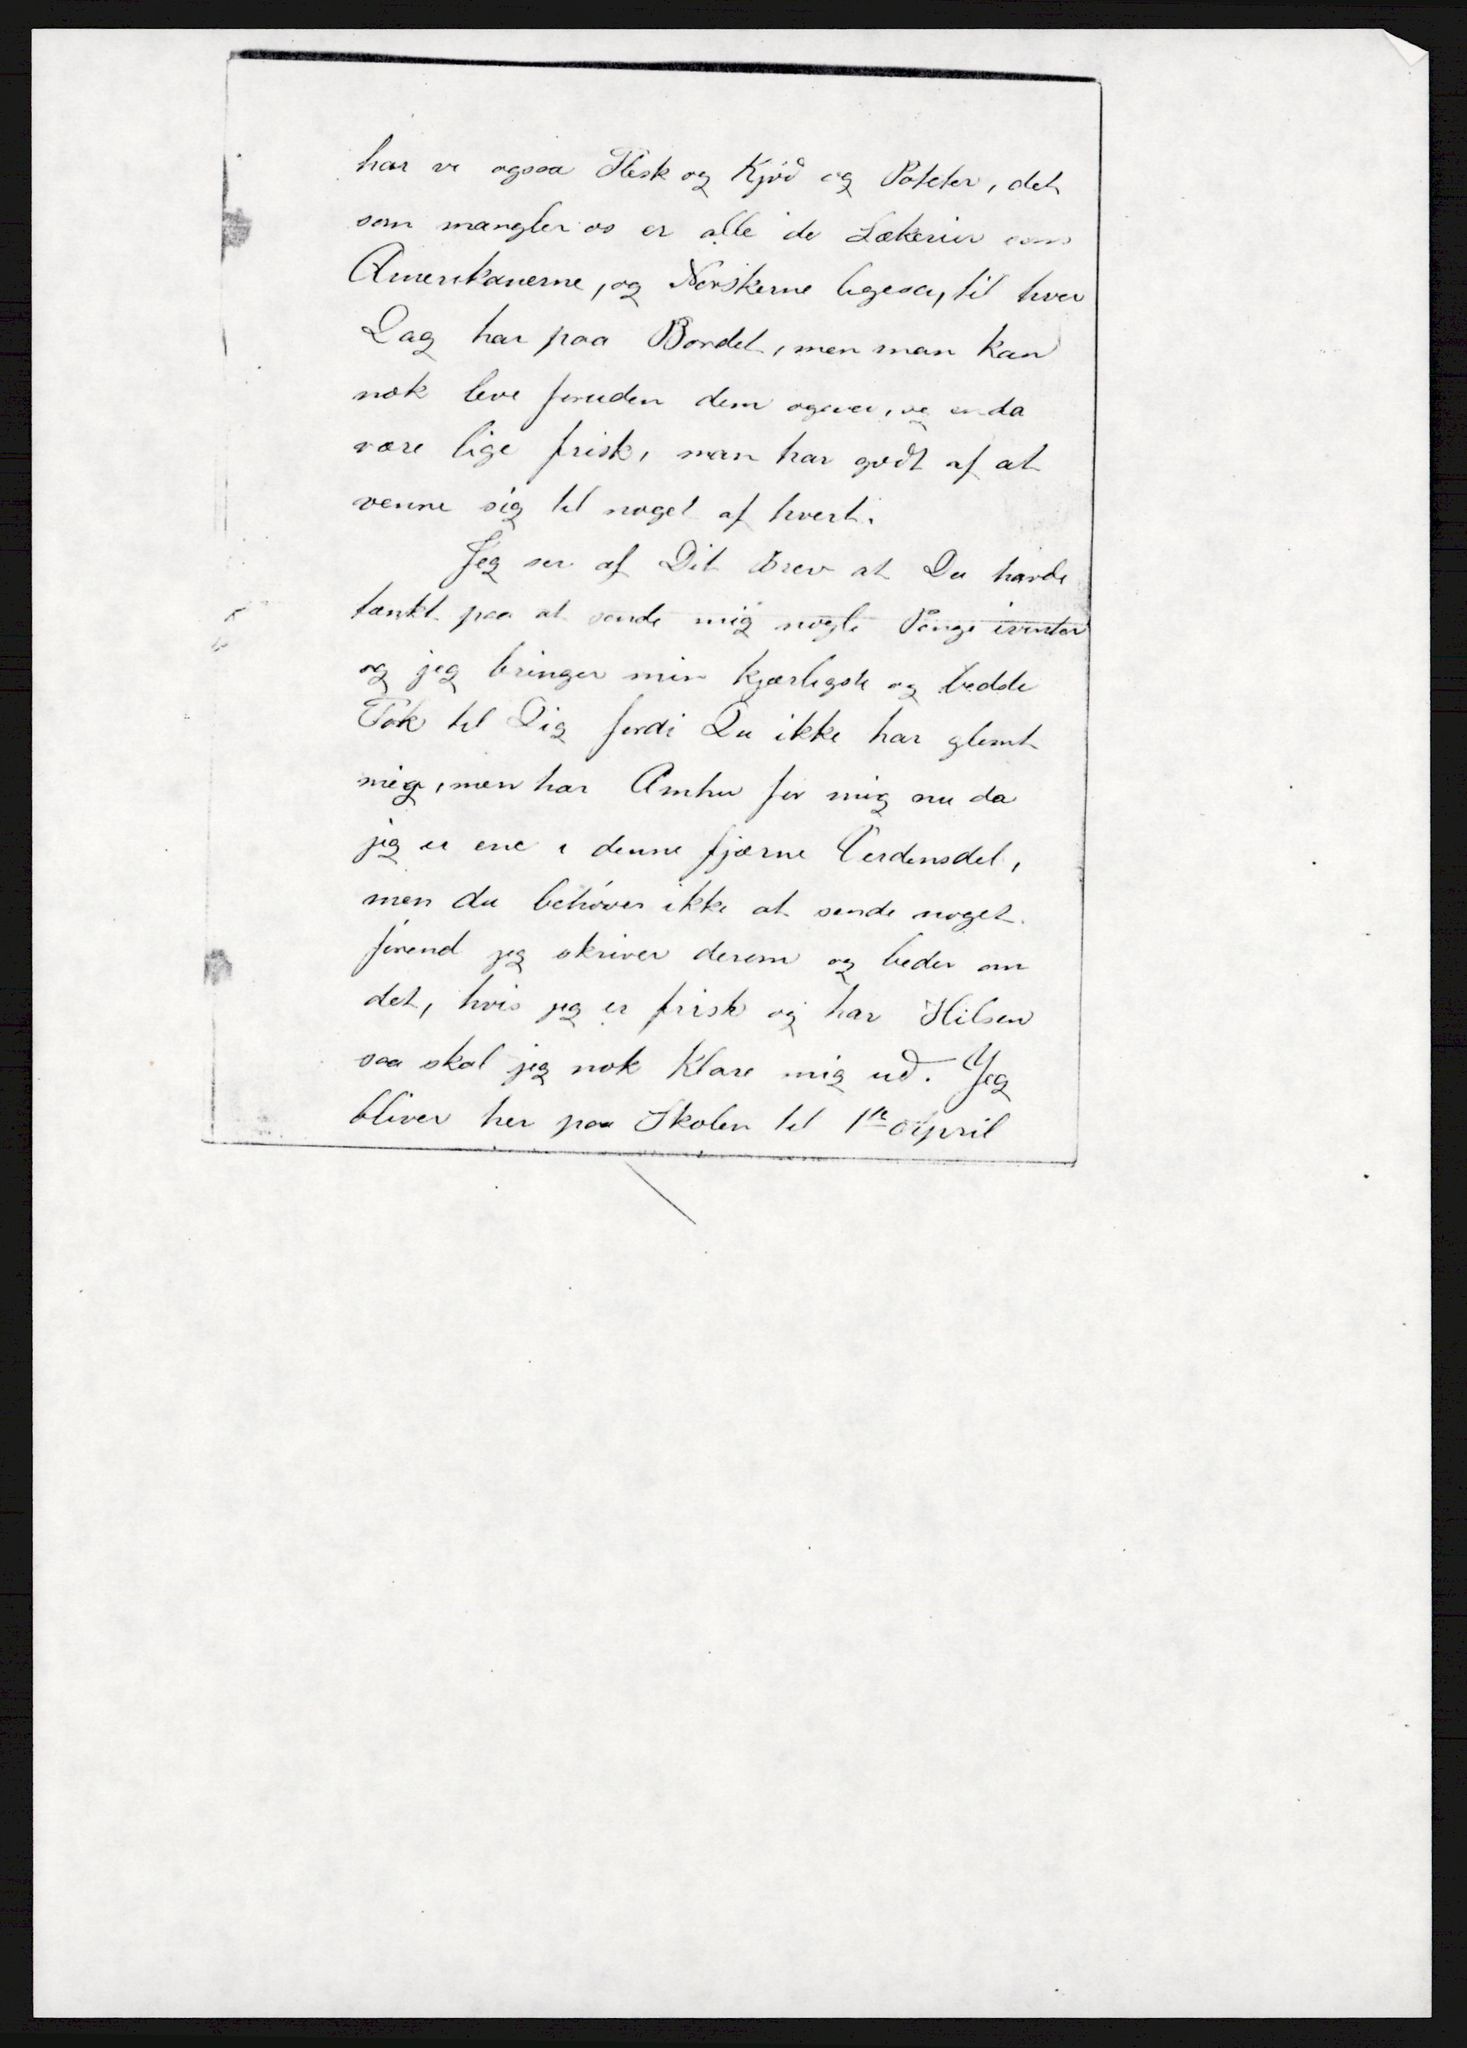 har vi ogsaa Flesk og Kjöd og Poteter, det
som mangler os er alle de Lækerier som
Amerikanerne, og Norskerne ligesaa, til hver
Dag har paa Bordet, men man kan
nok leve foruden dem ogsaa, og enda
være lige frisk, man har godt af at
venne sig til noget af hvert.
Jeg ser af Dit Brev at Du havde
tænkt paa at sende mig nogle Penge ivinter
og jeg bringer min kjærligste og bedste
Tak til Dig fordi Du ikke har glemt
mig, men har Omhu for mig nu da
jeg er ene i denne fjærne Verdensdel,
men du behöver ikke at sende noget
förend jeg skriver derom og beder om
det, hvis jeg er frisk og har Hilsen
saa skal jeg nok klare mig ud. Jeg
bliver her paa Skolen til 1ste April